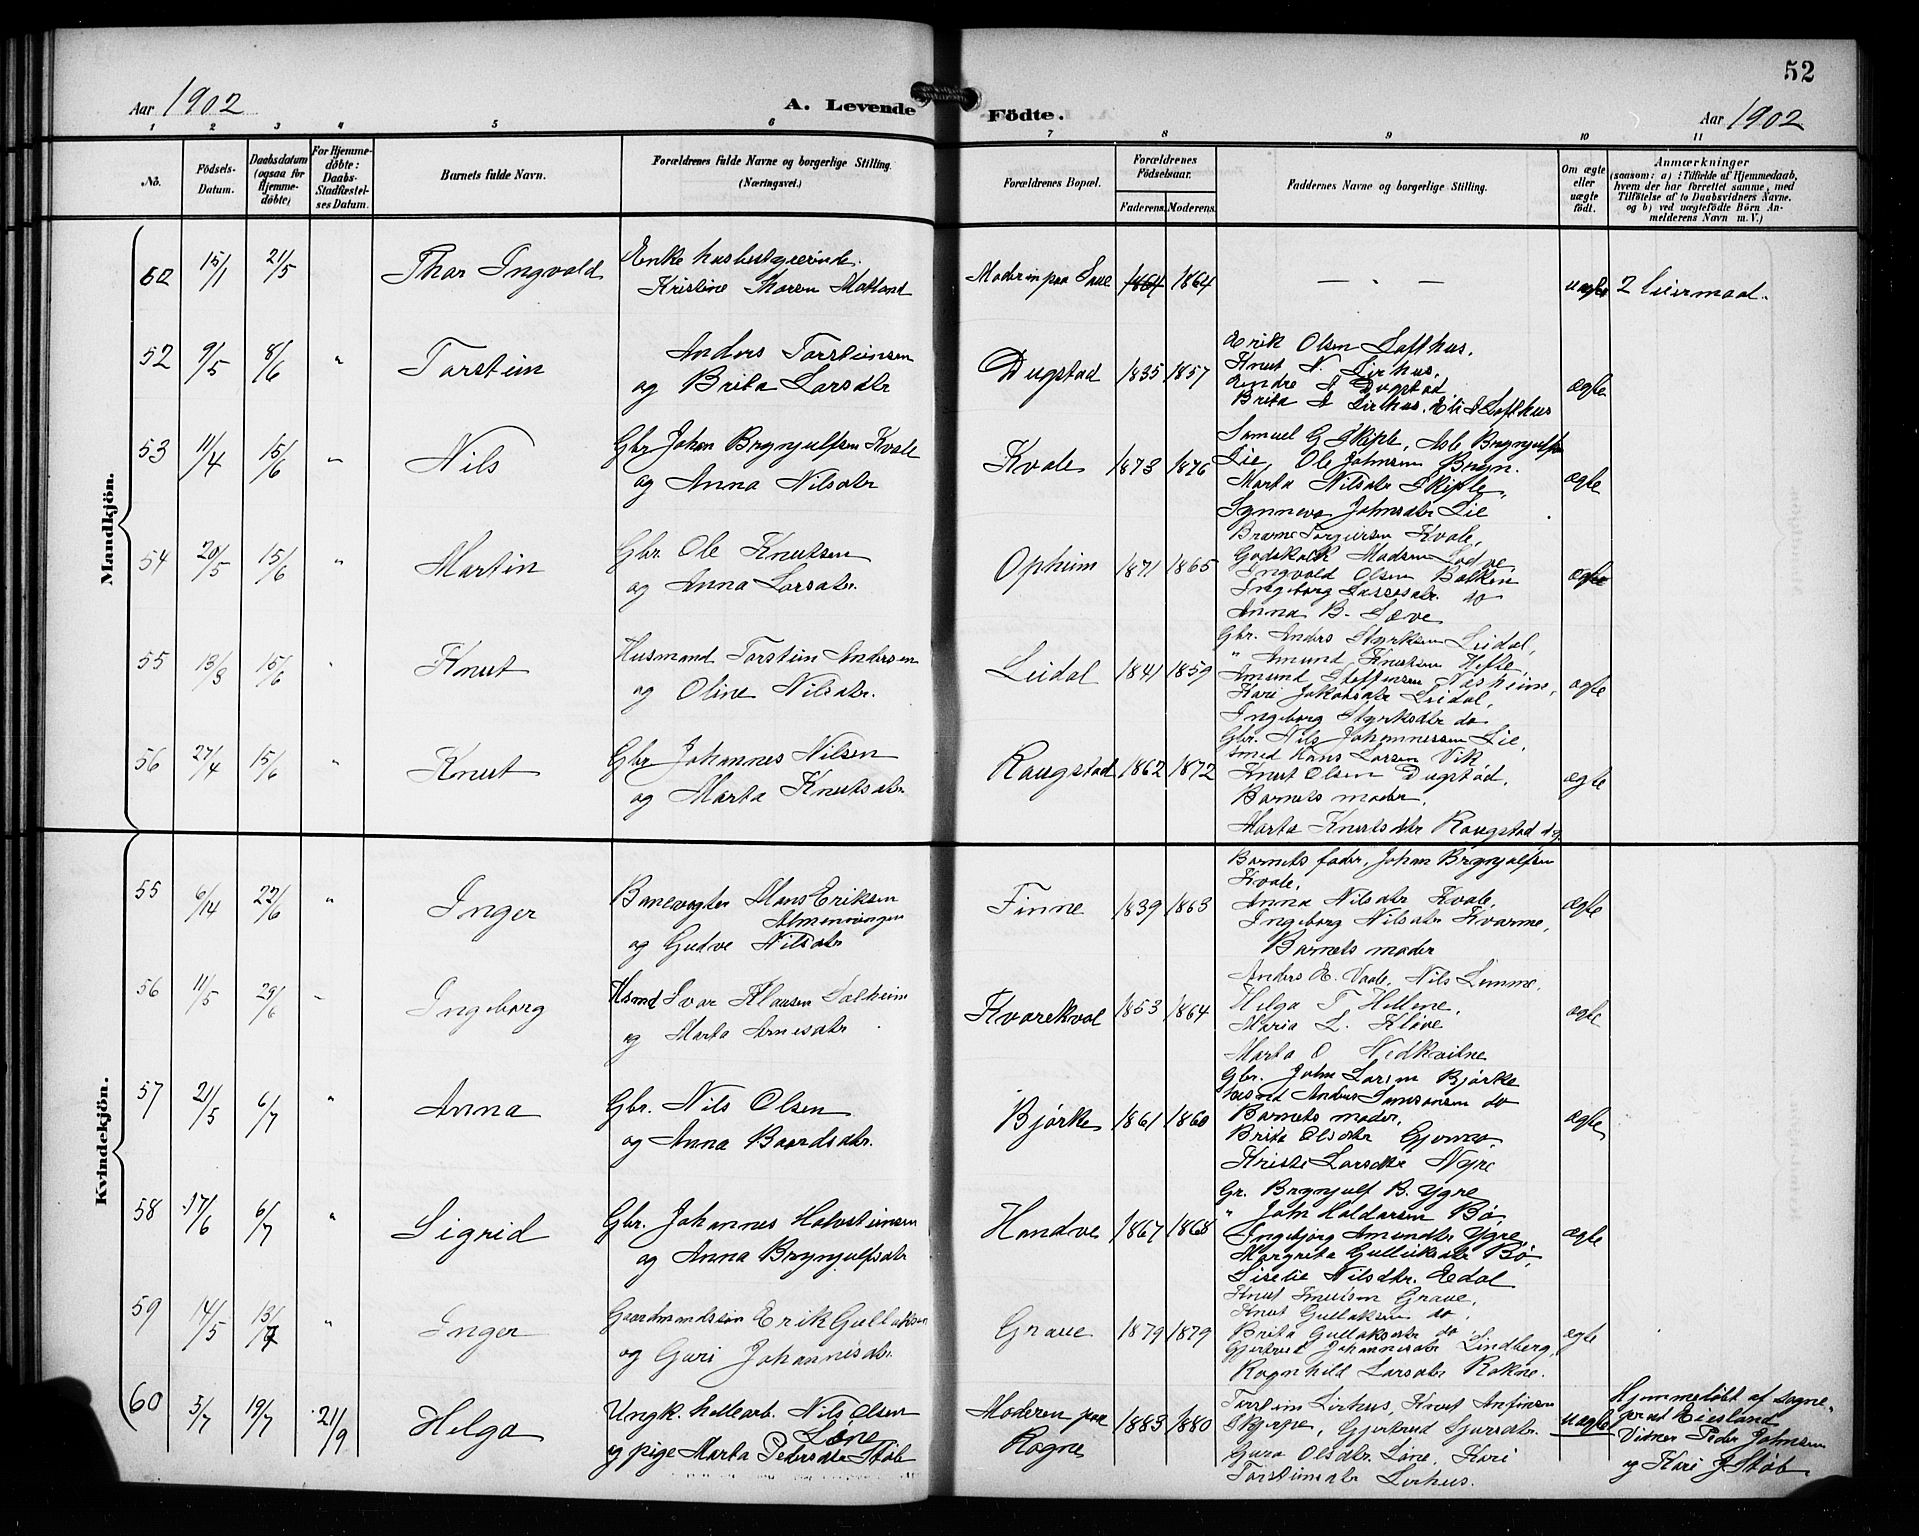 52
Aar 1902
A. Levende
Födte.
Aar 1902
1 2 3 4 5 6 7 8 9 10 11
No.
Födsels-
Datum.
Daabsdatum
(ogsaa for
Hjemme-
döbte)
For Hjemme-
döbte:
Daabs-
Stadfæstel-
ses Datum.
Barnets fulde Navn.
Forældrenes fulde Navne og borgerlige Stilling.
(Næringsvei.)
Forældrenes Bopæl.
Forældrenes
Födselsaar.
Faderens. Moderens.
Faddernes Navne og borgerlige Stilling.
Om ægte
eller
uægte
födt.
Anmærkninger
(saasom: a) i Tilfælde af Hjemmedaab,
hvem der har forrettet samme, med
Tilföielse af to Daabsvidners Navne.
og b) ved uægtefödte Börn An-
melderens Navn m. V.)
Mandkjön.
15/1 21/5 Thor Ingvald
Enke
Kristine Maren Matland
Moderen paa 1864 1864 — " — uægte 2 leiermaal.
52 9/5 8/6 " Torstein
Anders Torsteinsen
og Brita Larsdtr
Dugstad 1835 1857
Erik Olsen Lofthus,
Knut N. Lirhus,
Endre A Dugstad
Brita A Lirhus, Eli Lofthus
ægte
53 11/4 15/6 " Nils
Gbr Johan Brynjulfsen Kvale
og Anna Nilsdtr
Kvale 1873 1876
Samuel G Skiple, Asle Brynjulfsen
Lie, Ole Johnsen Bryn.
Marta Nilsdtr Skiple,
Synneva Johnsdtr Lie
ægte
54 20/5 15/6 " Martin
Gbr Ole Knutsen
og Anna Larsdtr.
Opheim 1871 1865
Torgiersen Kvale,
Godskalk Madsen
Ingvald Olsen Bakken
Ingeborg Larsdtr. do
Anna B. Sæve
ægte
55 13/3 15/6 " Knut
Husmand Torstein Andersen
og Oline Nilsdtr.
Leidal 1841 1859
Gbr. Anders Styrksen Leidal,
" Amund Knutsen Hefte,
Amund Steffensen Næsheim,
Kari Jakobsdtr Leidal,
Ingeborg Styrksdtr do
ægte
56 27/4 15/6 " Knut
Gbr Johannes Nilsen
og Marta Knutsdtr
Raugstad 1862 1872
Gbr. Nils Johannessen Lie,
Smed Hans Larsen Vik
Knut Olsen Dugstad,
Barnets moder,
Marta Knutsdtr Raugstad
ægte
Kvindekjön.
55 6/14 22/6 " Inger
Banevogter Hans Eriksen
Almenningen
og Gudve Nilsdtr
Finne 1839 1863
Barnets fader, Johan Brynjulfsen
Kvale,
Anna Nilsdtr Kvale,
Ingeborg Nilsdtr Kvarme,
Barnets moder
ægte
56 11/5 29/6 " Ingeborg
Hsmd Ivar Klausen Solheim
og Marta Arnesdtr
Kvarekval 1853 1864
Anders E. Vaale, Nils Lemme,
Helga T Hellene,
Maria L. Kløve
Marta O Nedkvitne
ægte
57 21/5 6/7 " Anna
Gbr. Nils Olsen
og Anna Baardsdtr.
Bjørke 1861 1860
Gbr. John Larsen Bjørke
Anders Samsonsen do
Barnets moder,
Brita Olsdtr Gjerme,
Kristi Larsdtr Nyre
ægte
58 17/6 6/7 " Sigrid
Gbr. Johannes Halvsteinsen
og Anna Brynjulfsdtr
Handve 1867 1868
Gr. Brynjulf B. Ygre
" John Haldorsen Bø,
Ingebjørg Amundsdtr Ygre,
Margreta Gulleiksdtr Bø,
Liselie Nilsdtr. Edal
ægte
59 14/5 13/7 " Inger
Gaardmandssøn Erik Gullaksen
og Guri Johannesdtr.
Grave 1879 1879
Knut Knutsen Grave,
Knut Gullaksen do,
Brita Gullaksdtr do
Gjertrud Johannesdtr Lindberg,
Ragnhild Larsdtr Rokne.
ægte
60 5/7 19/7 21/9 Helga
Ungk. hellearb. Nils Olsen
Løne
og pige Marta Pedersdtr Støb
Moderen paa
Rogne
1883 1880
Torstein Lirhus, Knut Anfinsen
Skjerpe, Gjertrud Sjursdtr.
Guro Olsdtr Løne, Kari
Torsteinsdtr Lirhus.
uægte
Hjemmedøbt af sogne-
prest Eiesland
Vidner Peder Johnsen
og Kari J Støb